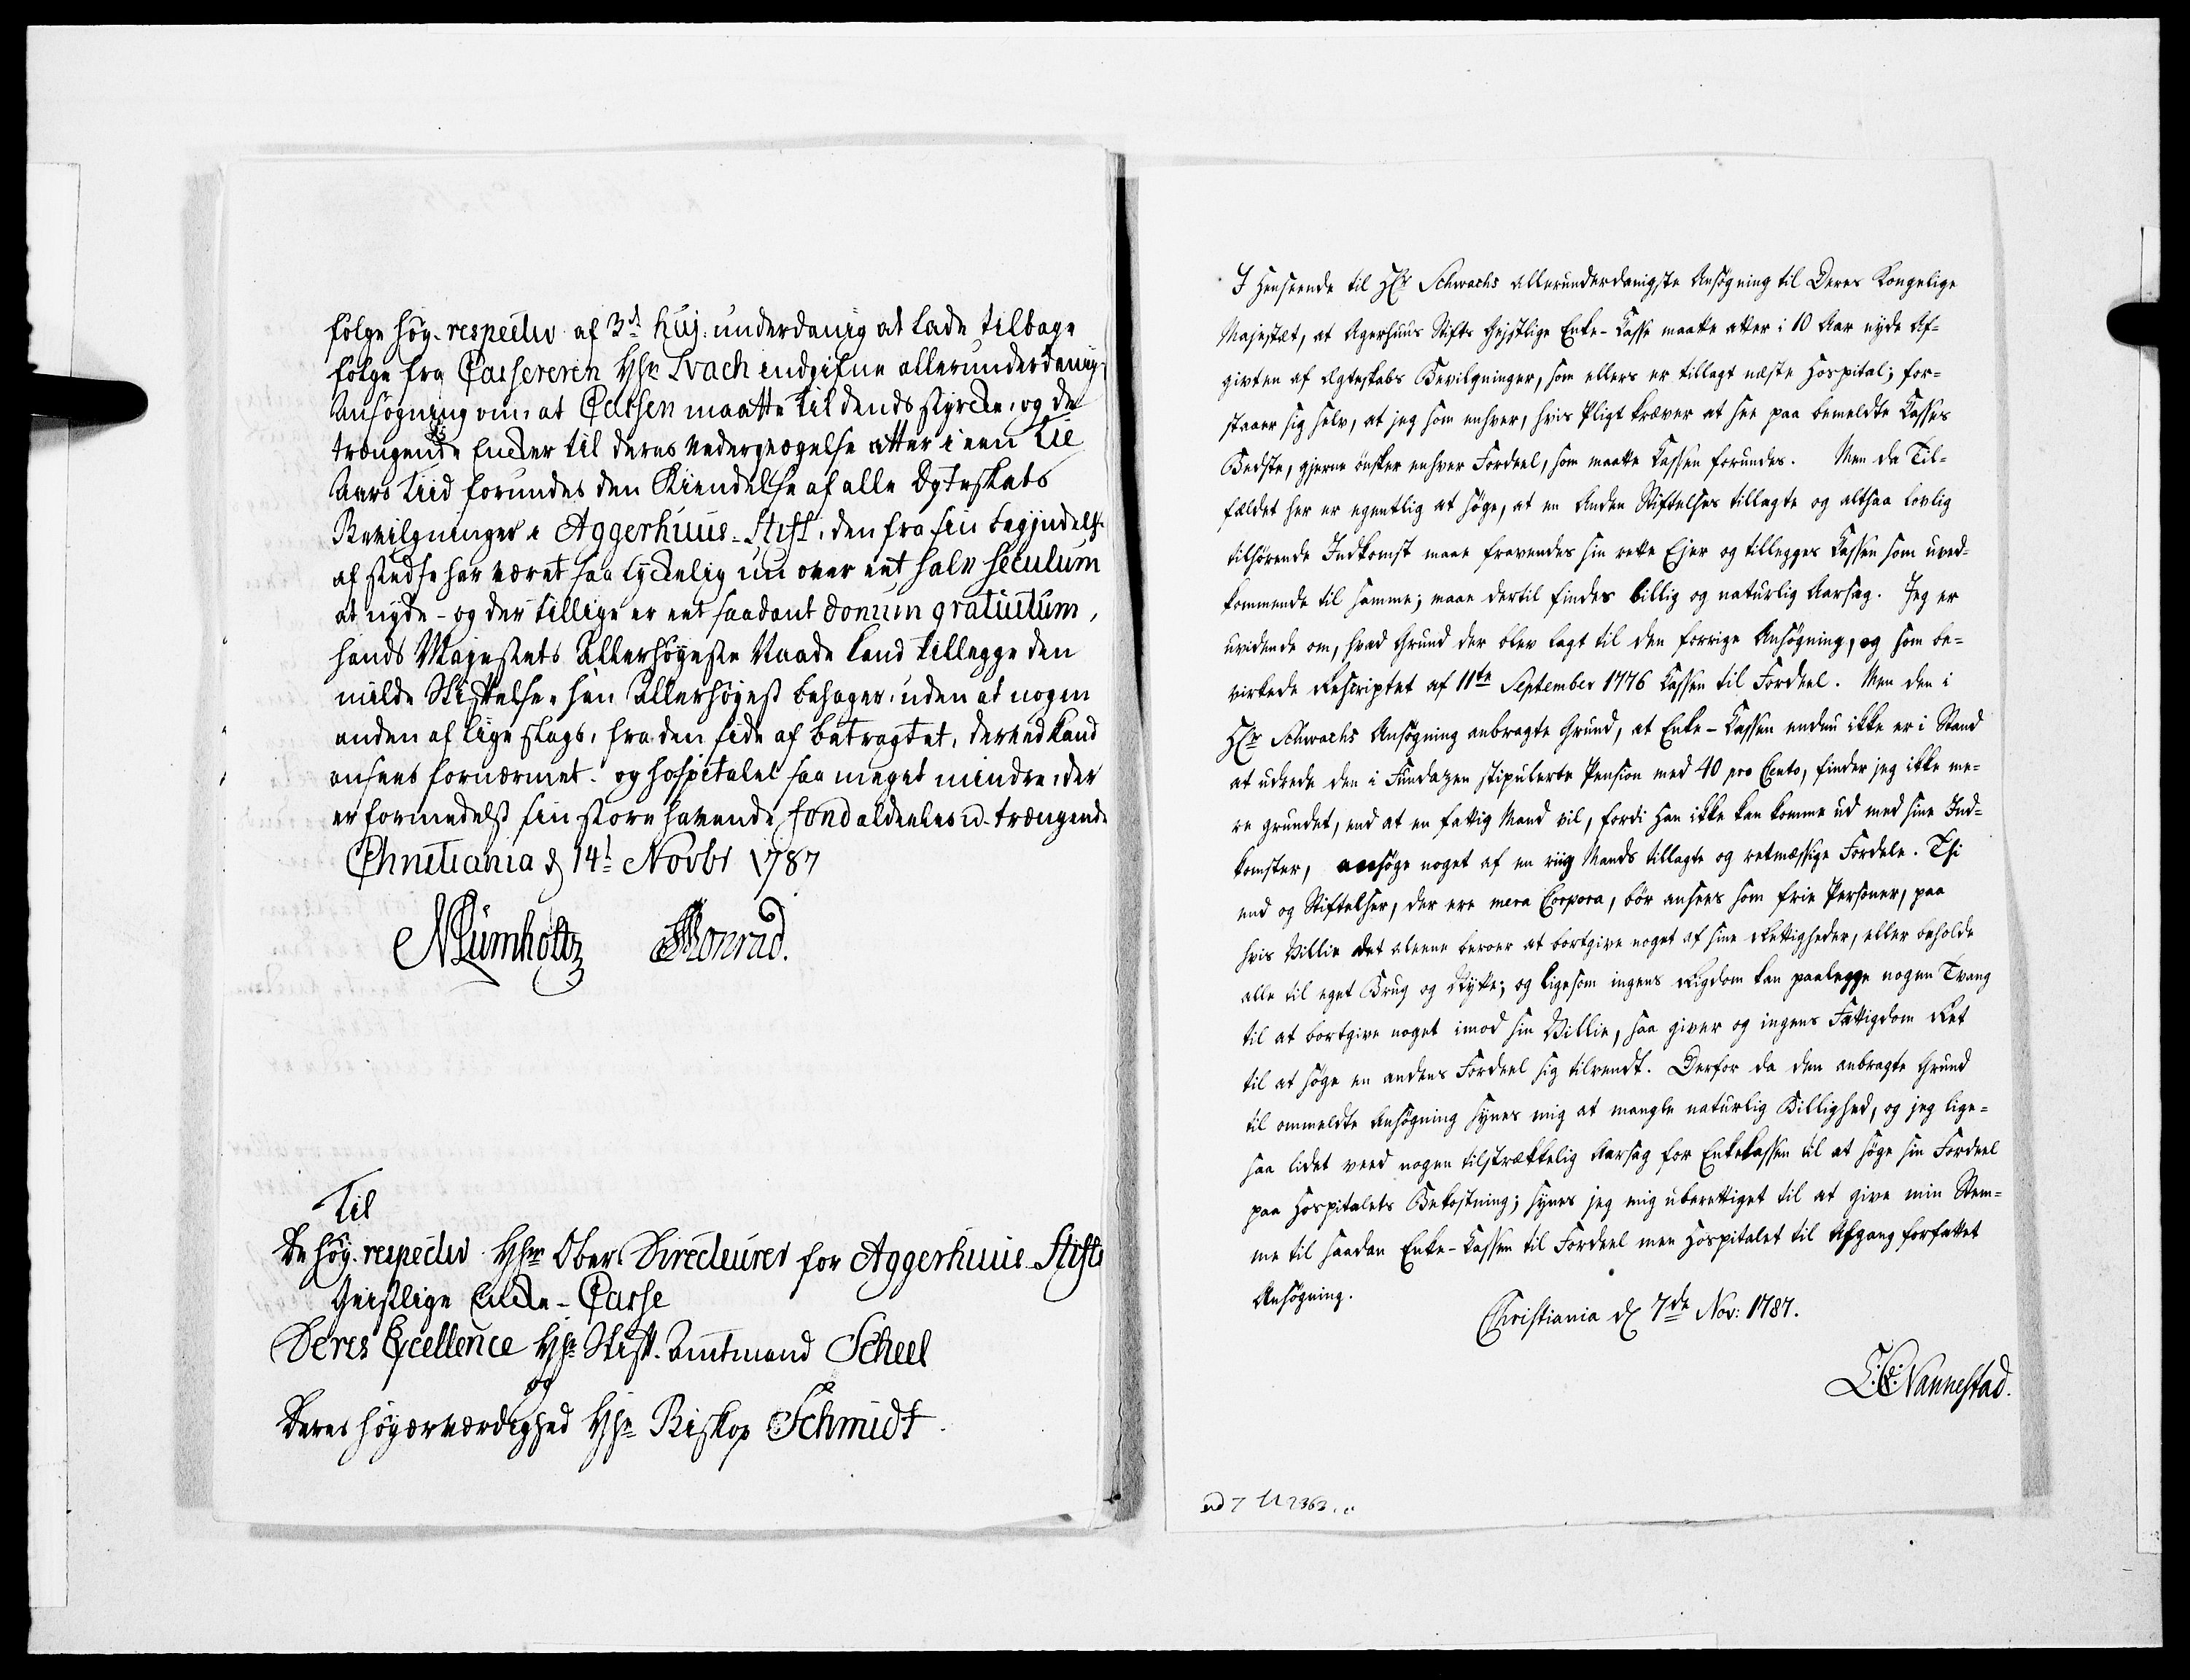 følge høy-respective af 3d huj: underdanig at lade tilbage
følge fra Cassereren Hhr Svach indgifne allerunderdanig:
Ansøgning om, at Cassen maatte til dends styrcke, og de
trængende Encker til deres vederqvægelse atter i een Tie
Aars Tiid forundes den Kiendelse af alle Ægteskabs
Bevilgninger i Aggerhuus-Stift, den fra sin begyndelse
af stedse har været saa lyckelig nu over eet halv seculum
at nyde - og der tillige er eet saadant donum gratuitum,
hands Majestets Allerhøyeste Naade kand tillegge den
milde Stiftelse, han Allerhøyest behager, uden at nogen
anden af lige slags, fra den side af betragtet, derved kand
ansees fornærmet. og hospitalet saa meget mindre, der
er formedelst sin store havende fond aldeeles u-trængende
Christiania d 14de Novbr 1787
N Lumholtz Konrad.
Til
De høy-respective Hhrr Ober-Directeurer for Aggerhuus Stifts
Geistlige Encke-Casse
Deres Excellence Hhr Stift-Amtmand Scheel
og
Deres høyærværdighed Hhr Biskop Schmidt
I Henseende til Hr Schwachs allerunderdanigste Ansøgning til Deres Kongelige
Majestæt, at Agerhuus Stifts Gejstlige Enke-Kasse maatte atter i 10 Aar nyde Af-
givten af Ægteskabs Bevilgninger, som ellers er tillagt næste Hospital; for-
staaer sig selv, at jeg som enhver, hvis Pligt kræver at see paa bemeldte Kasses
Bedste, gjerne ønsker enhver Fordeel, som maatte Kassen forundes. Men da Til-
fældet her er egentlig at søge, at en Anden Stiftelses tillagte og altsaa lovlig
tilhørende Indkomst maae fravendes sin rette Ejer og tillegges Kassen som uved-
kommende til samme; maae dertil findes billig og naturlig Aarsag. Jeg er
uvidende om, hvad Grund der blev lagt til den forrige Ansøgning, og som be-
virkede Rescriptet af 11te September 1776 Kassen til Fordeel. Men den i
Hr Schwachs Ansøgning anbragte Grund, at Enke-Kassen endnu ikke er i Stand
at udrede den i Fundazen stipulerte Pension med 40 pro Cento, finder jeg ikke me-
re grundet, end at en fattig Mand vil, fordi han ikke kan komme ud med sine Ind-
komster, ansøge noget af en riig Mands tillagte og retmæssige Fordele. Thi
end og Stiftelser, der ere mera Corpora, bør ansees som frie Personer, paa
hvis Villie det aleene beroer at bortgive noget af sine Rettigheder, eller beholde
alle til eget Brug og Nytte; og ligesom ingens Rigdom kan paalegge nogen Tvang
til at bortgive noget imod sin Villie, saa giver og ingens Fattigdom Ret
til at søge en andens Fordeel sig tilvendt. Derfor da den anbragte Grund
til ommeldte Ansøgning synes mig at mangle naturlig Billighed, og jeg lige-
saa lidet veed nogen tilstrækkelig Aarsag for Enkekassen til at søge sin Fordeel
paa Hospitalets Bekostning; synes jeg mig uberettiget til at give min Stem-
me til saadan Enke-Kassen til Fordeel men Hospitalet til Afgang forfattet
Ansøgning.
Christiania d 7de Nov: 1787.
Nannestad.
ad 7 2363.